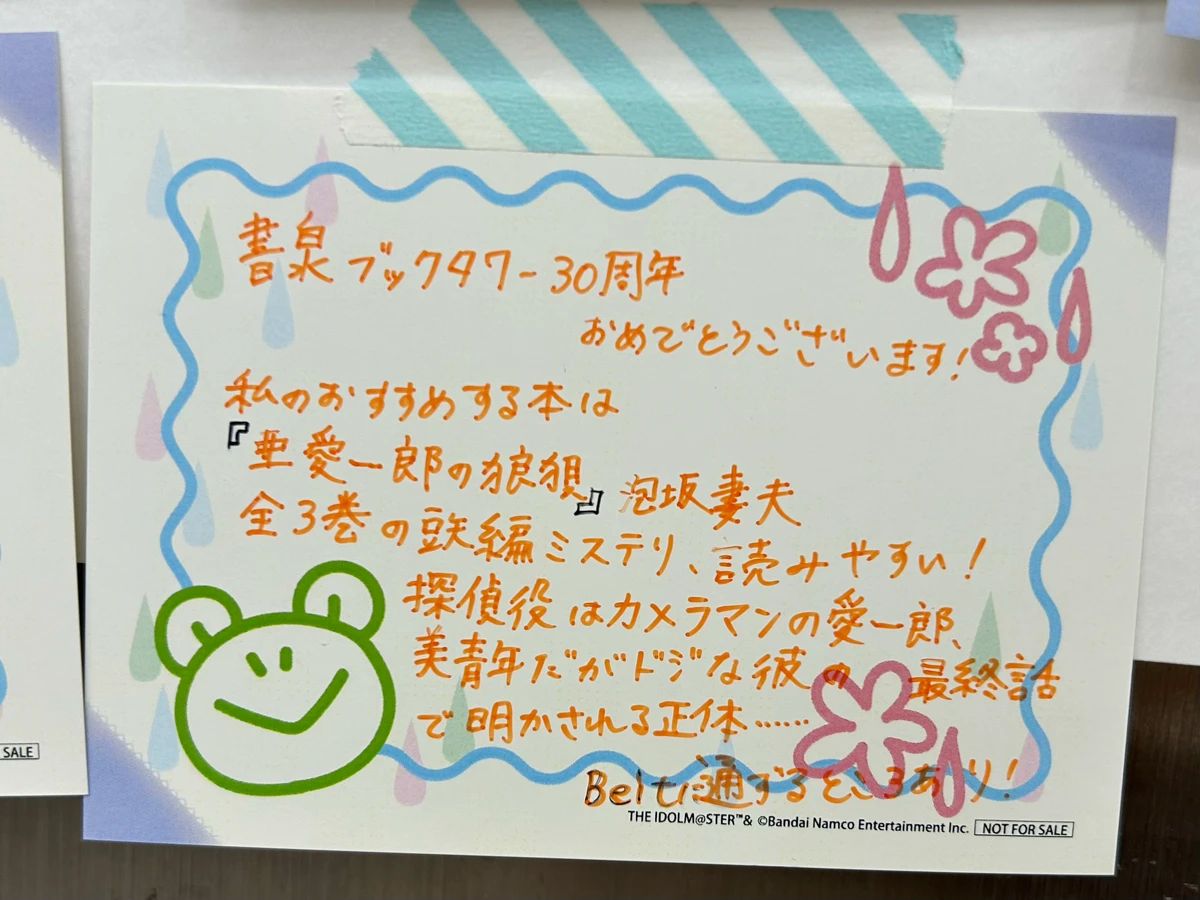 書泉ブックタワー30周年
おめでとうございます!
私のおすすめする本は
『亜愛一郎の狼狽』泡坂妻夫
全3巻の短編ミステリ、読みやすい!
探偵役はカメラマンの愛一郎、
美青年だがドジな彼の 最終話
で明かされる正体……
Beitに通ずるところあり!
THE IDOLM@STER™& ©Bandai Namco Entertainment Inc. NOT FOR SALE
SALE